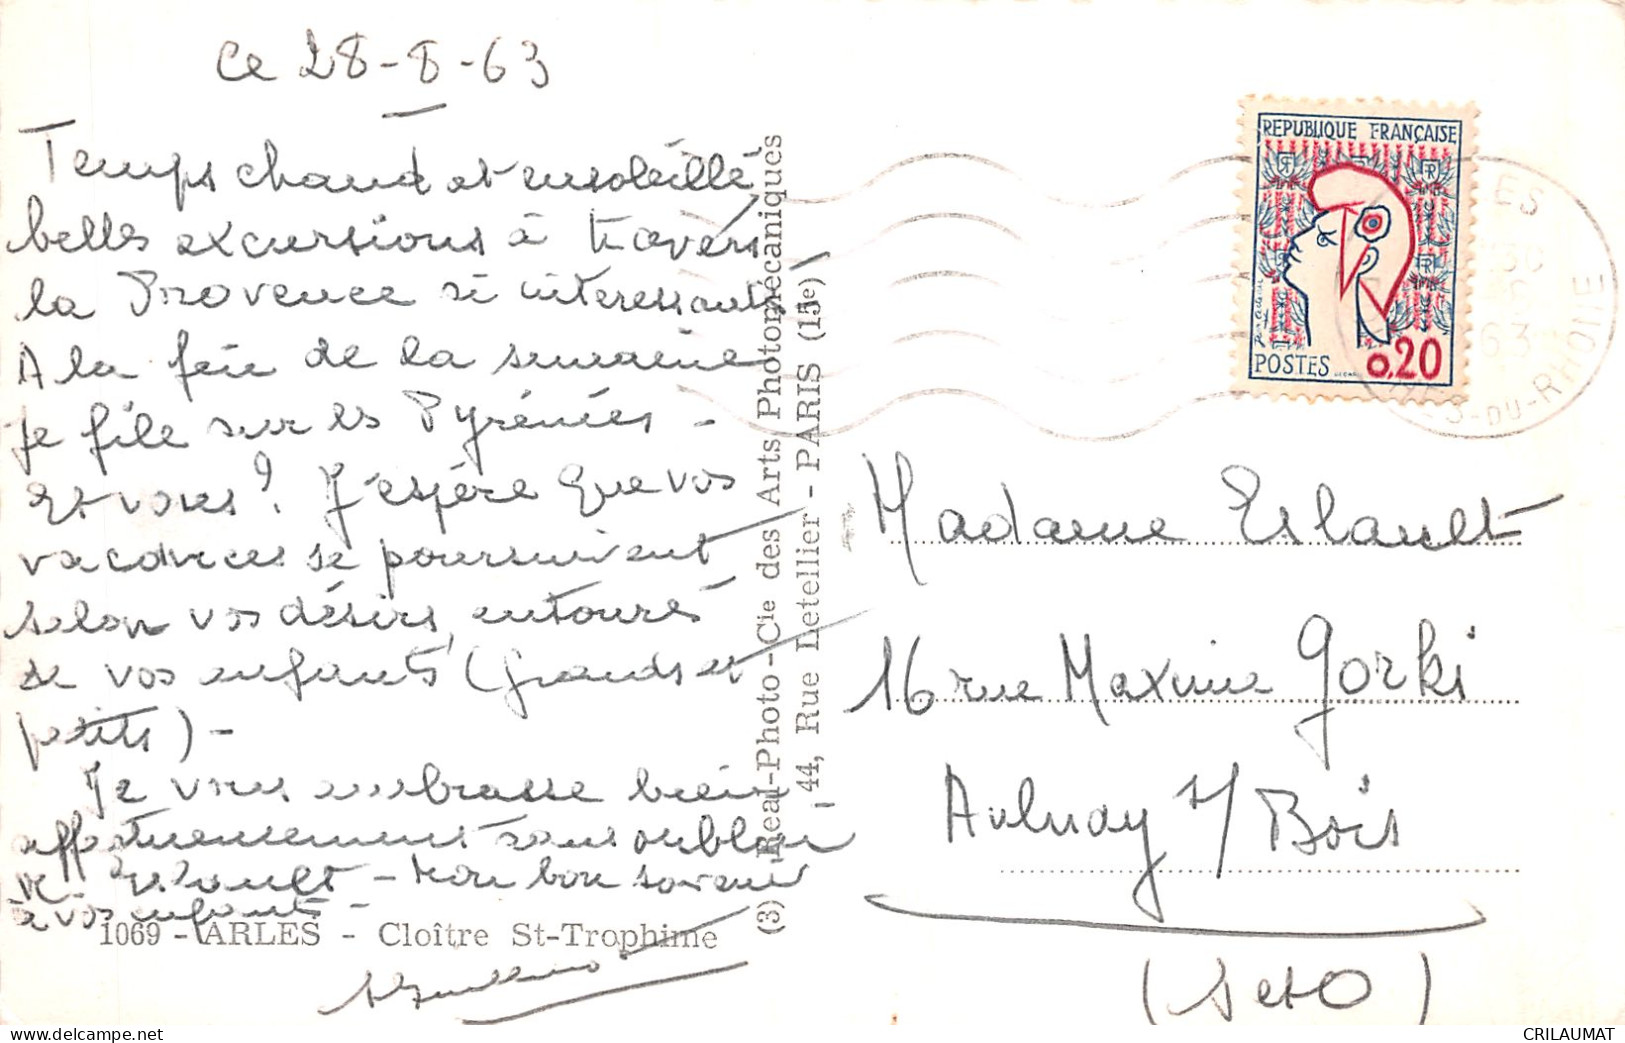 Ce 28-8-63
Temps chaud et ensoleillé,
belles excursions à travers
la Provence si intéressante
A la fin de la semaine
je file sur les Pyrénées -
et vous ? J'espère que vos
vacances se poursuivent
selon vos désirs, entouré
de vos enfants (grands et
petits) -
Je vous embrasse bien
affectueusement sans oublier
Mr Eslault - Mon bon souvenir
à vos enfants -
1069 - ARLES - Cloître St-Trophime
(3) Real-Photo - Cie des Arts Photomécaniques
44, Rue Letellier - PARIS (15e)
REPUBLIQUE FRANÇAISE
POSTES 0,20
-DU-RHONE
Madame Eslault
16 rue Maxime Gorki
Aulnay s/ Bois
(Set O)
CRILAUMAT